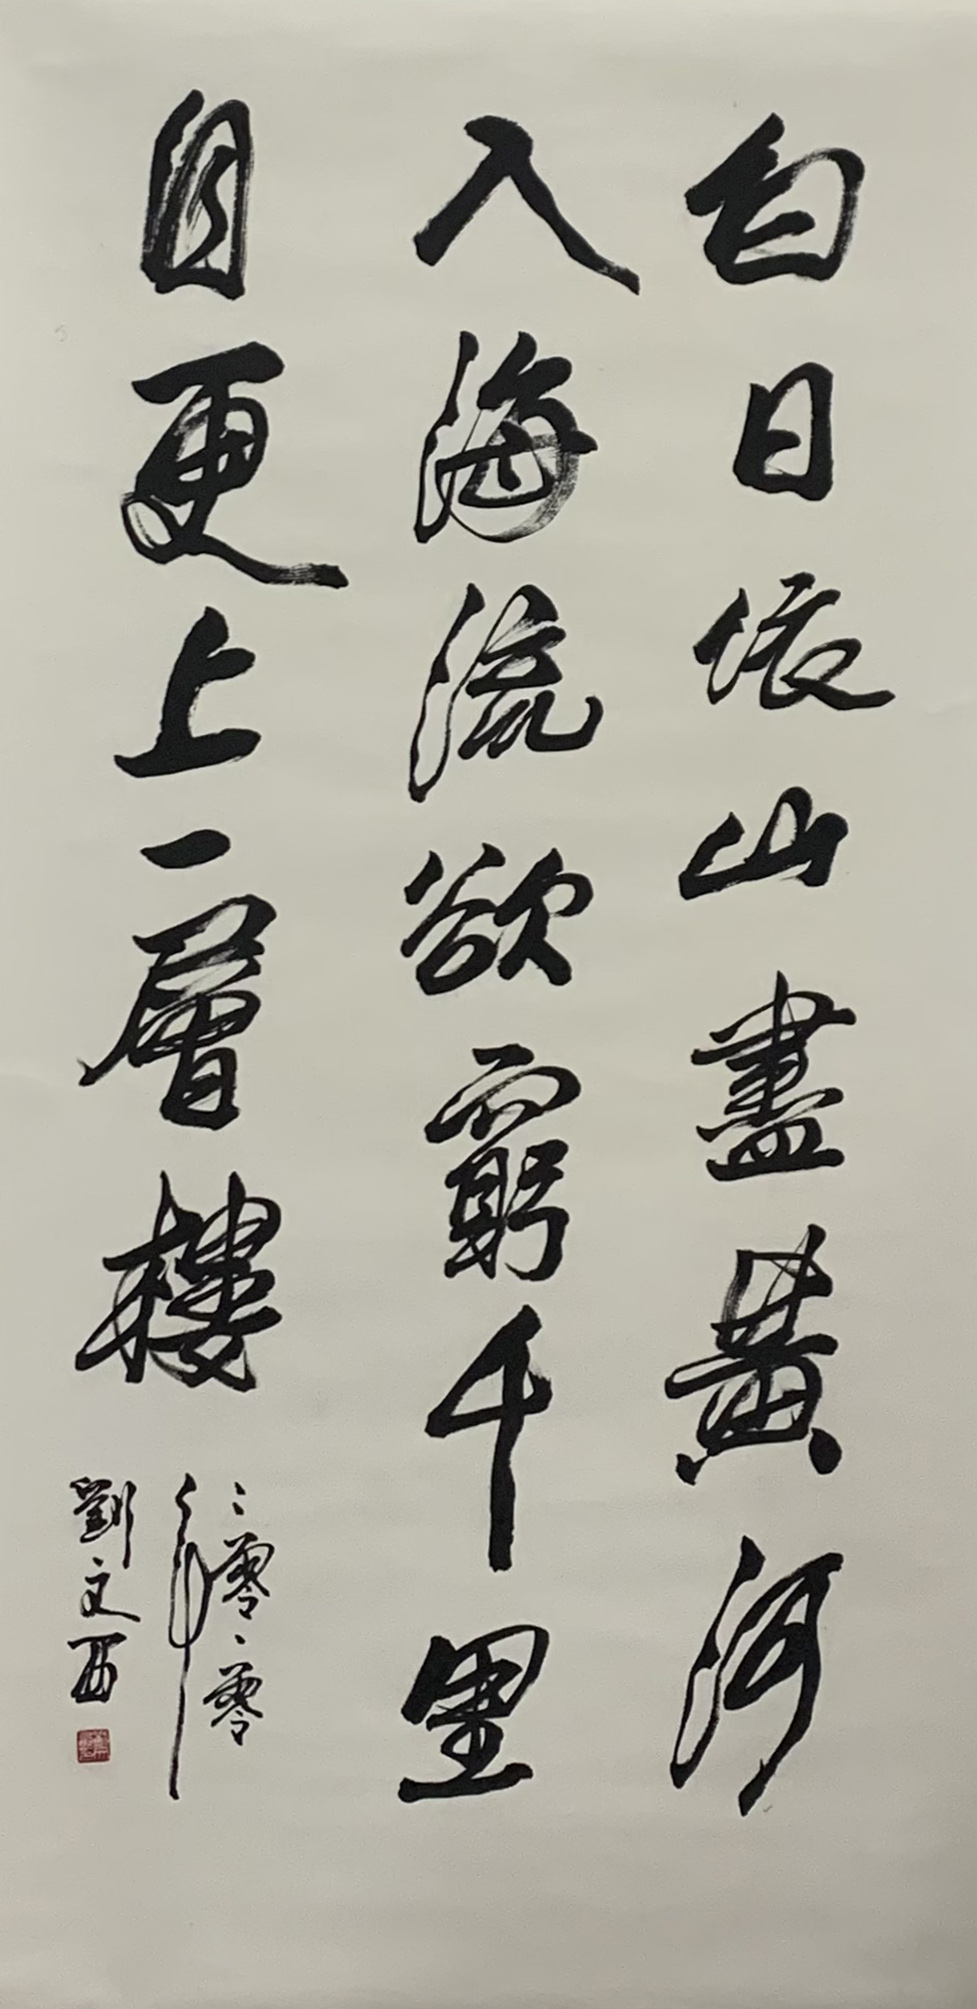 白日依山盡黄河
入海流欲窮千里
目更上一層樓
二零一零
年
劉文西